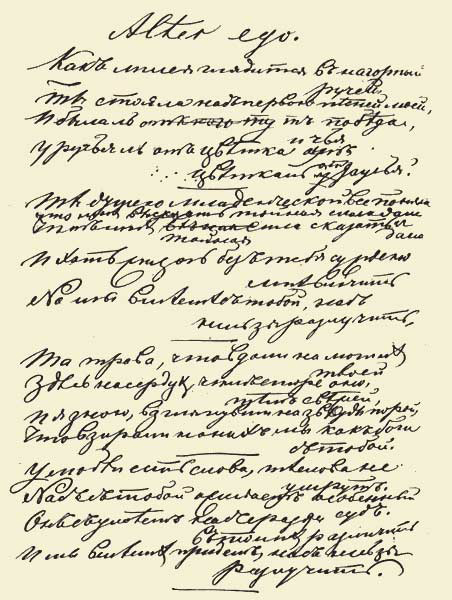 Alter ego.
Какъ лилея глядится въ нагорный
ручей,
Ты стояла надъ первою пѣсней моей,
И была ль при этомъ побѣда,
и чья
У ручья ль отъ цвѣтка
цвѣтка ль отъ ручья?
Ты душею младенческой все поняла
Что мнѣ высказать тайная сила дала
И хоть жизнь безъ тебя суждено
мнѣ влачить
Но мы вмѣстѣ съ тобой, насъ
нельзя разлучить.
Та трава, что вдали на могилѣ
твоей
Здѣсь на сердцѣ, чѣмъ старѣ оно,
тѣмъ свѣжей,
И я знаю, взглянувши на звѣзды порой,
Что взирали на нихъ мы какъ боги
съ тобой.
У любви есть слова, тѣ слова не
умрутъ.
Насъ съ тобой ожидаетъ особенный
судъ.
Онъ съумѣетъ насъ сразу
въ толпѣ различить
И мы вмѣстѣ придемъ, насъ нельзя
разлучить.